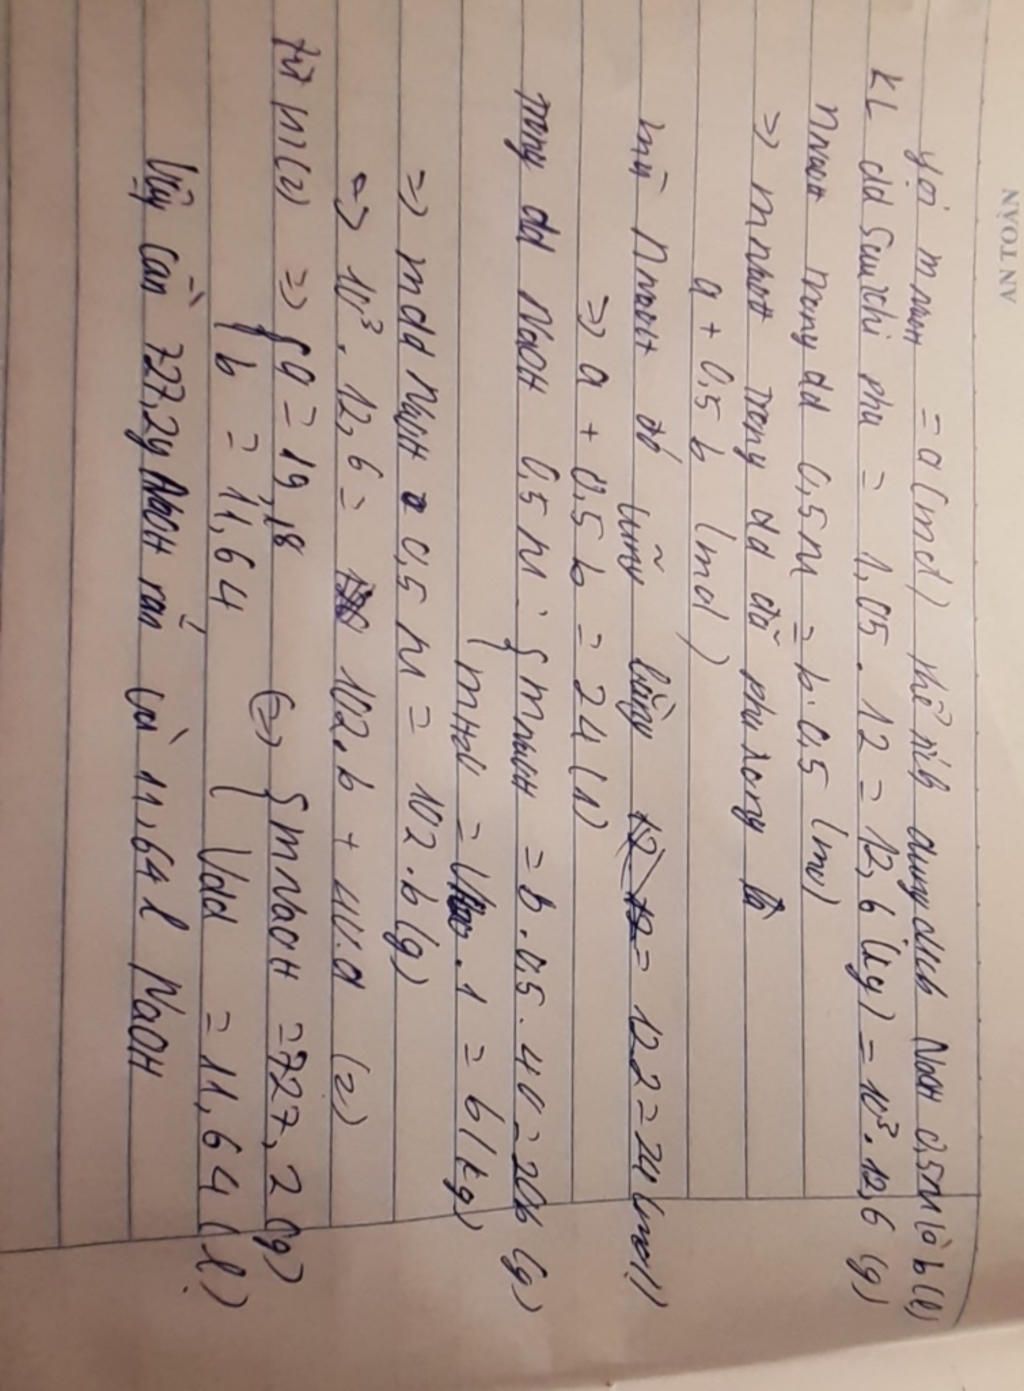 AN TOÀN
gọi mNaOH = a (mol) thể tích dung dịch NaOH 0,5M là b (l)
KL dd sau khi pha = 1,05 . 12 = 12,6 (kg) = 10³ . 12,6 (g)
nNaOH trong dd 0,5M = b . 0,5 (mol)
=> mNaOH trong dd đã pha xong là
a + 0,5 b (mol)
mà nNaOH đó cũng bằng = 12.2 = 24 (mol)
=> a + 0,5 b = 24 (1)
trong dd NaOH 0,5M : { mNaOH = b . 0,5 . 40 = 20b (g)
mH2O = . 1 = b (kg)
=> mdd NaOH 0,5 M = 102 . b (g)
=> 10³ . 12,6 = 102 . b + 40 . a (2)
từ (1)(2) => { a = 19,18 <=> { mNaOH = 727,2 (g)
b = 11,64 Vdd = 11,64 (l)
Vậy cần 727,2g NaOH rắn và 11,64 l NaOH